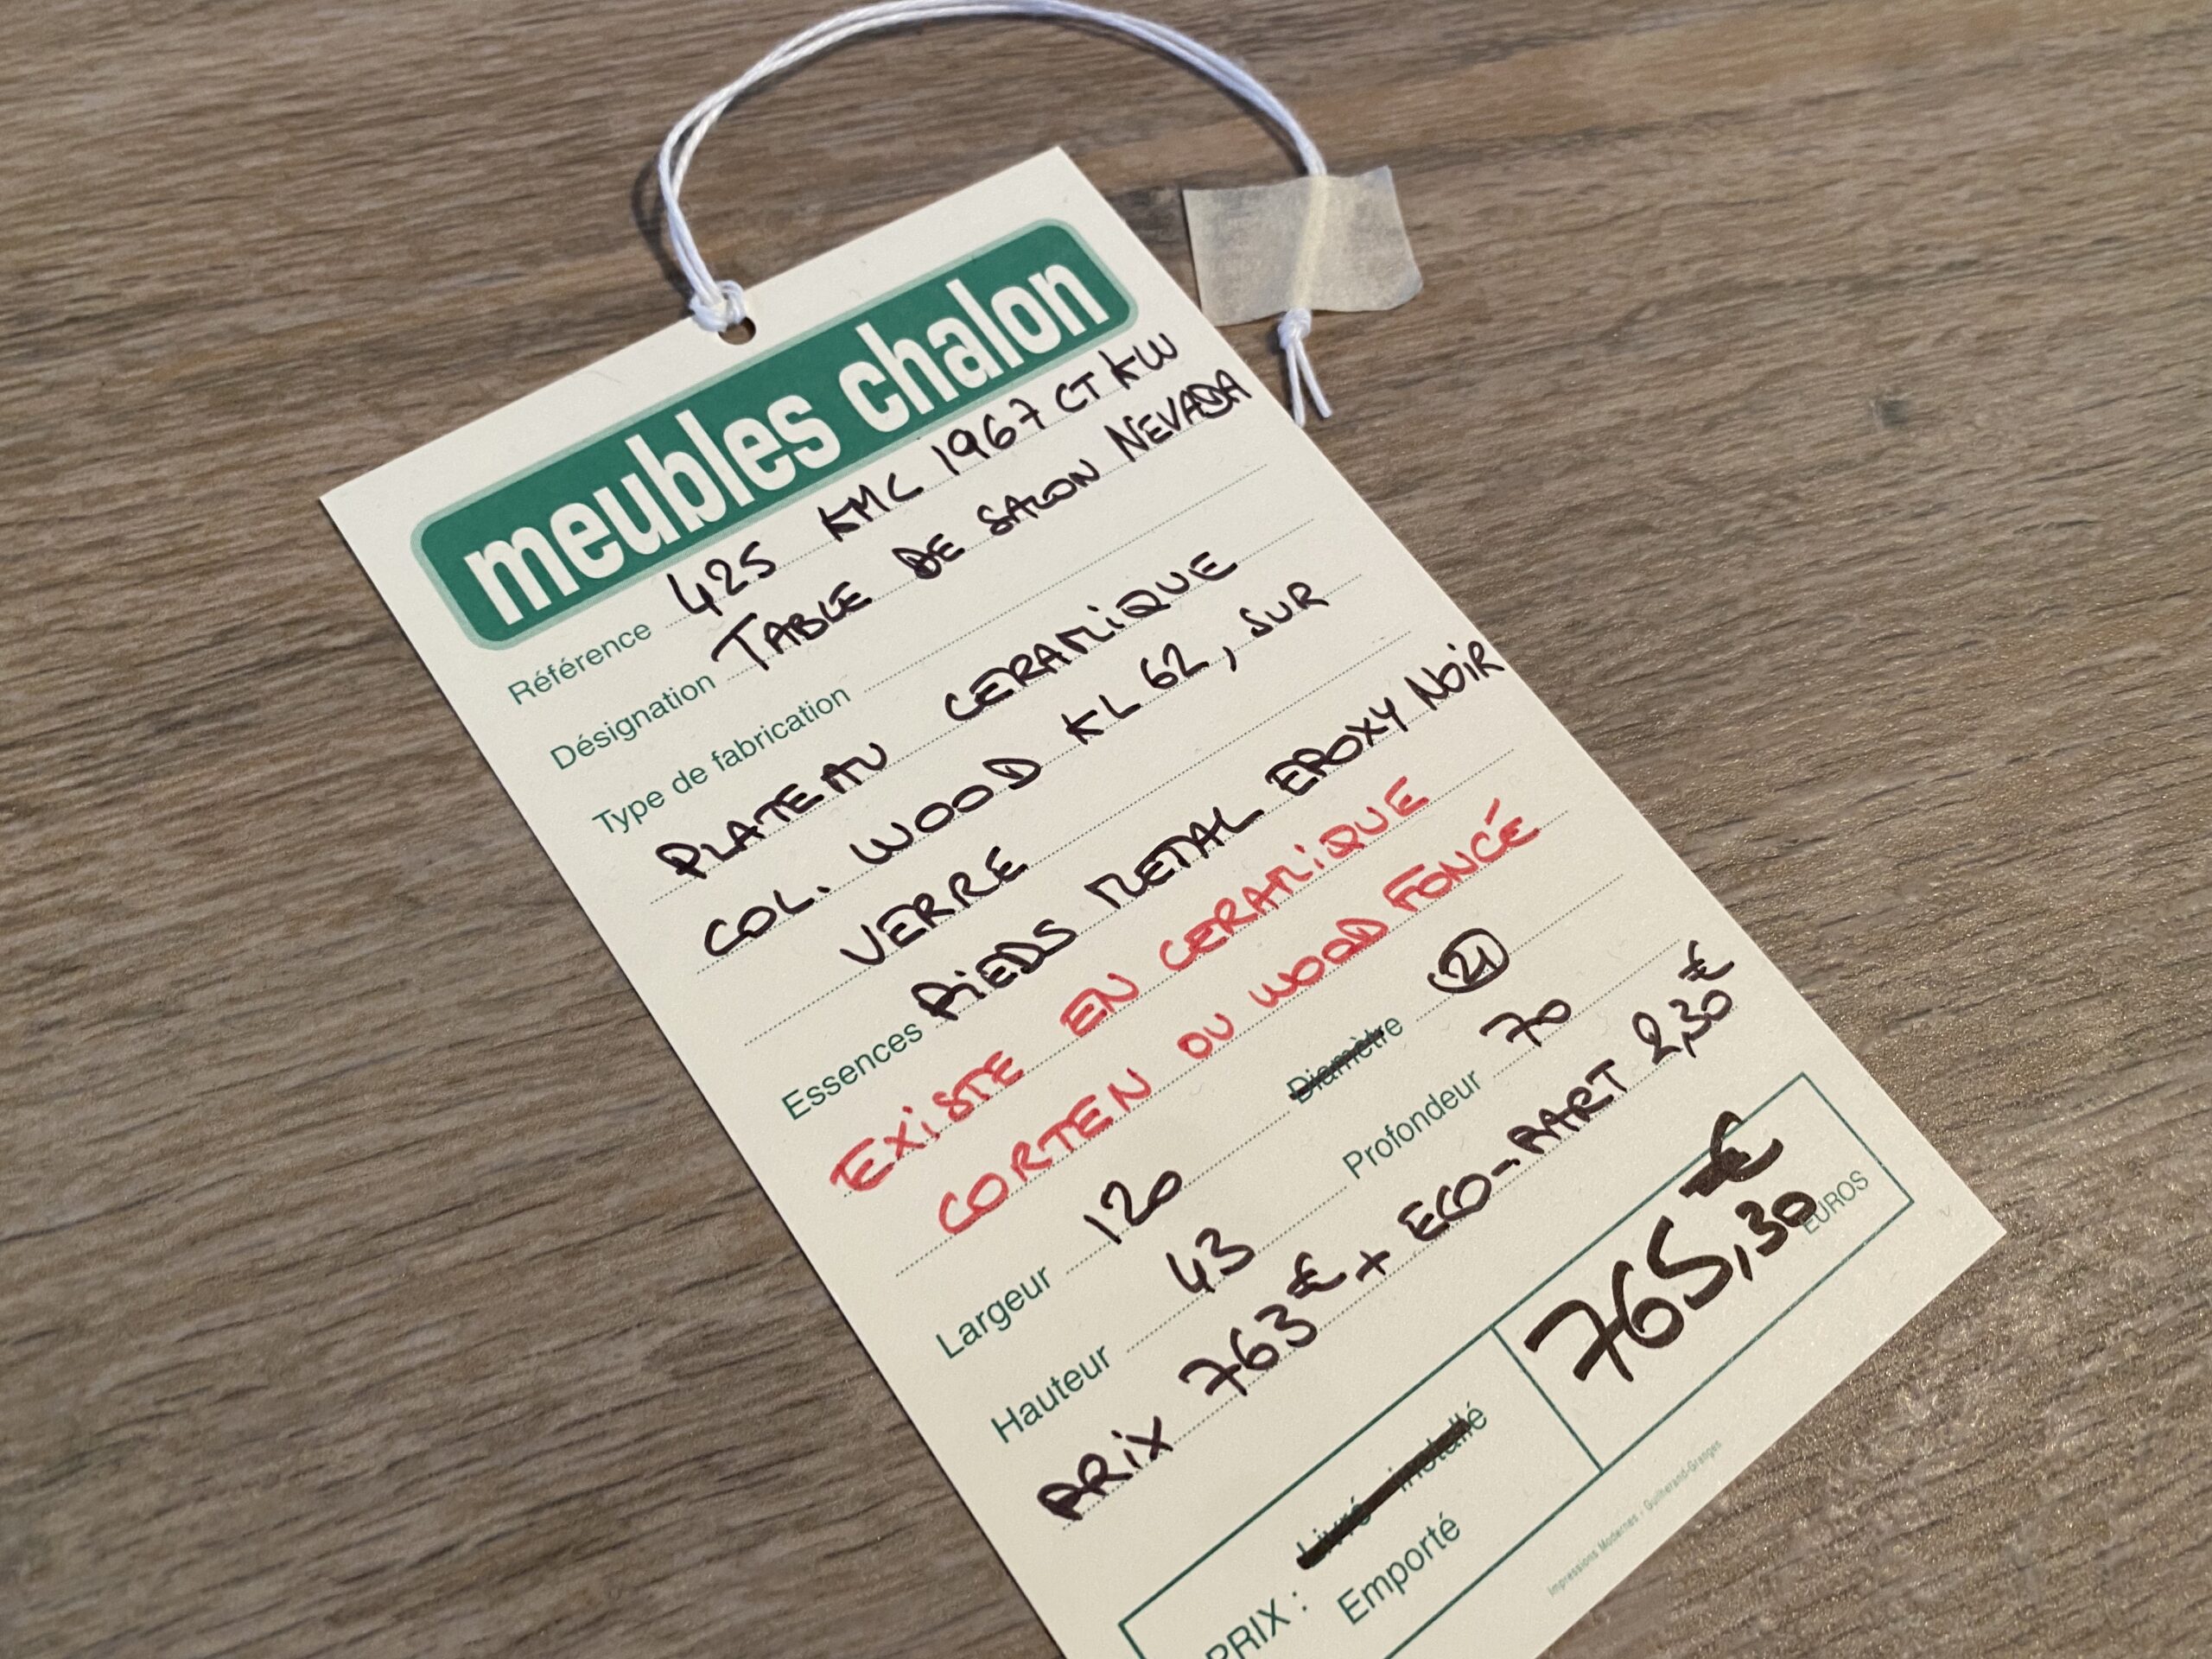 meubles chalon
Référence 425 KMC 1967 CT KW
Désignation TABLE DE SALON NEVADA
Type de fabrication
PLATEAU CERAMIQUE
COL. WOOD KL 62, SUR
VERRE
Essences PIEDS METAL EPOXY NOIR
EXISTE EN CERAMIQUE
CORTEN OU WOOD FONCÉ
Largeur 120 Diamètre 21
Hauteur 43 Profondeur 70
PRIX 763€ + ECO-PART 2,30€
PRIX : Livré - installé 765,30 € EUROS
Emporté
Impressions Modernes - Guilherand-Granges